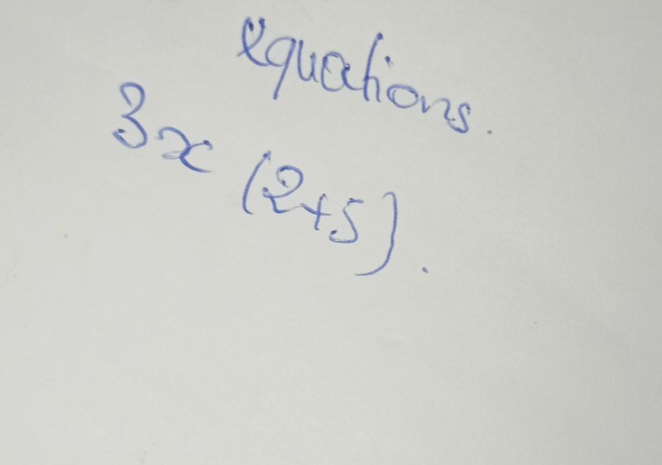 equations.
3x (2+5).